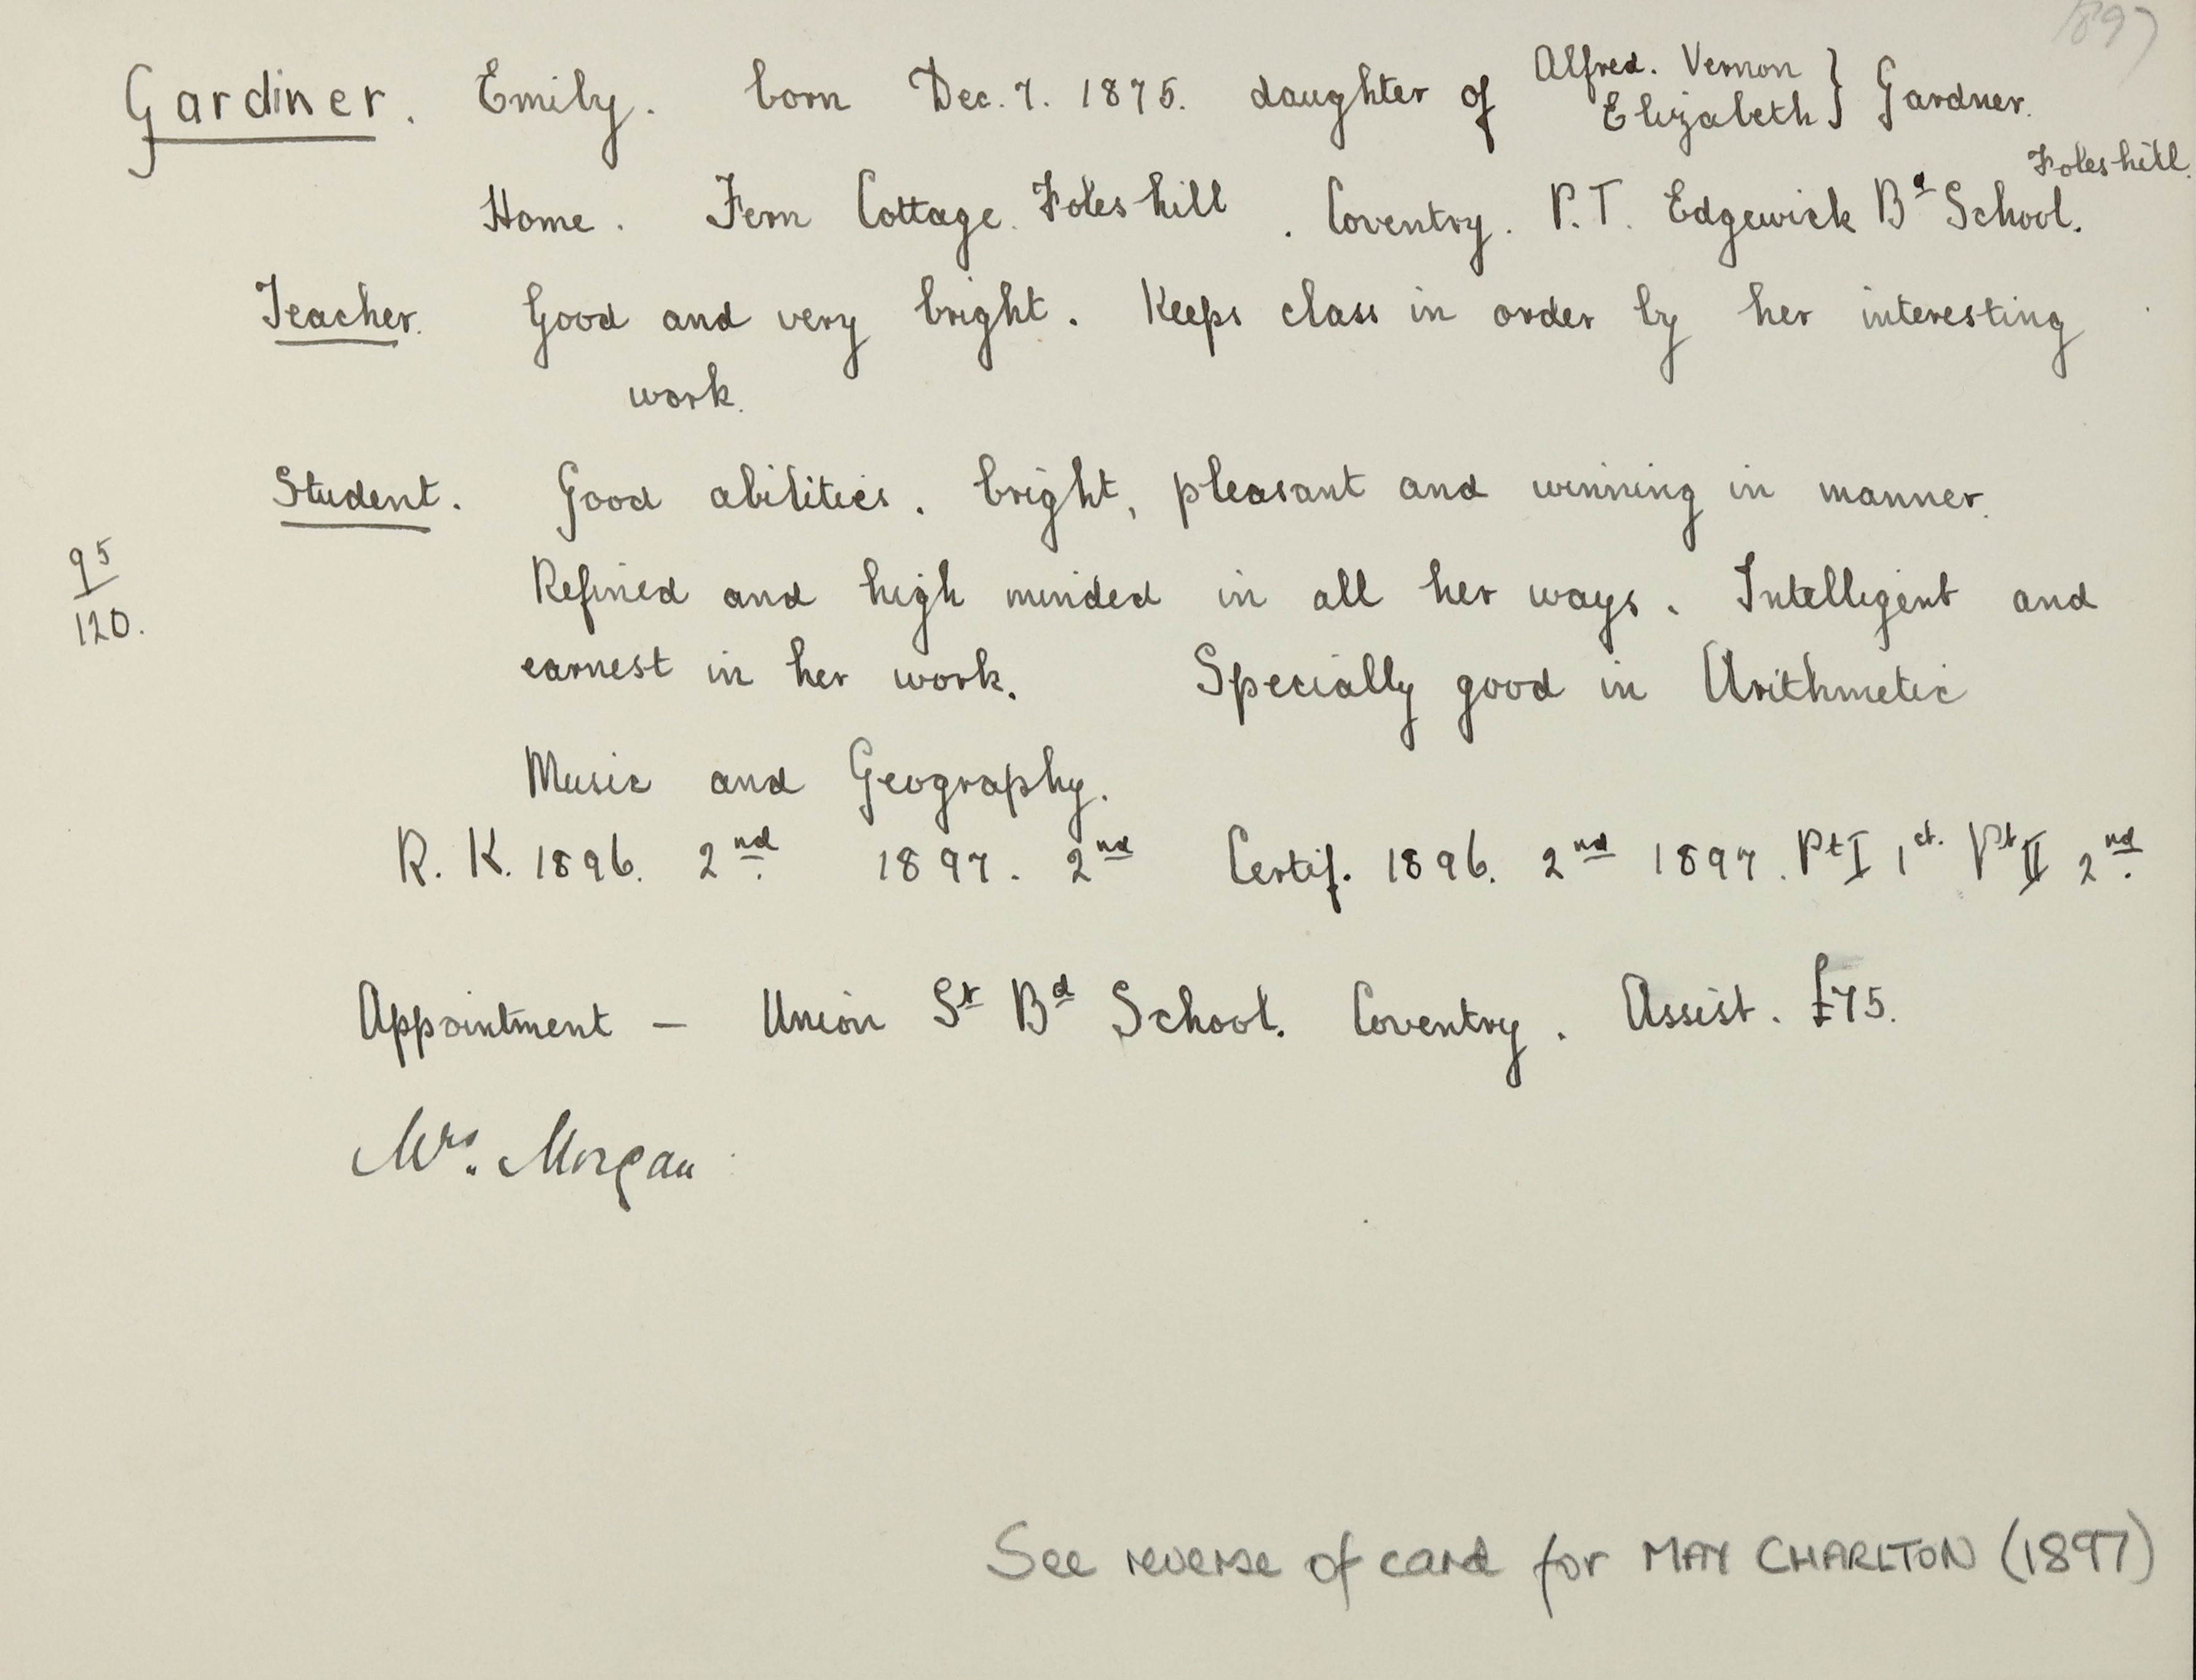 1897
Gardiner. Emily. born Dec. 7. 1875. daughter of Alfred. Vernon } Gardner.
Elizabeth
Foleshill.
Home. Fern Cottage. Foleshill. Coventry. P.T. Edgewick Bd School.
Teacher. Good and very bright. Keeps class in order by her interesting
work.
Student. Good abilities. bright, pleasant and winning in manner.
95
120.
Refined and high minded in all her ways. Intelligent and
earnest in her work. Specially good in Arithmetic
Music and Geography.
R. K. 1896. 2nd. 1897. 2nd Certif. 1896. 2nd 1897. Pt I 1st. Pt II 2nd.
Appointment – Union St Bd School. Coventry. Assist. £75.
Mrs. Morgan
See reverse of card for MAY CHARLTON (1897)